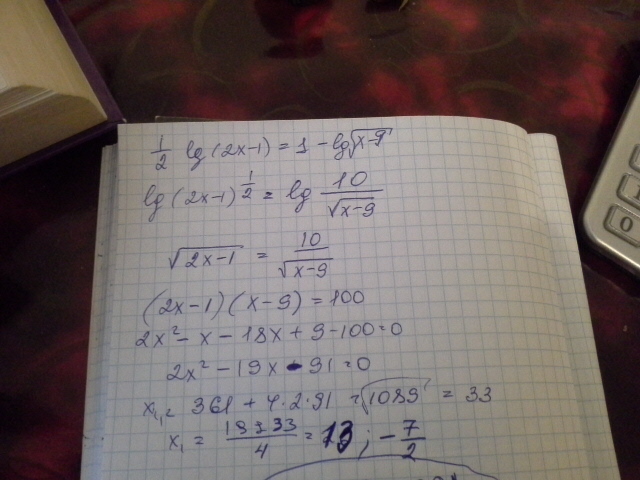 1/2 lg(2x-1) = 1 - lg√(x-9)
lg(2x-1)^(1/2) = lg 10/√(x-9)
√(2x-1) = 10/√(x-9)
(2x-1)(x-9) = 100
2x² - x - 18x + 9 - 100 = 0
2x² - 19x - 91 = 0
361 + 4·2·91 = √1089 = 33
x₁ = 19±33/4 = 13; -7/2
0